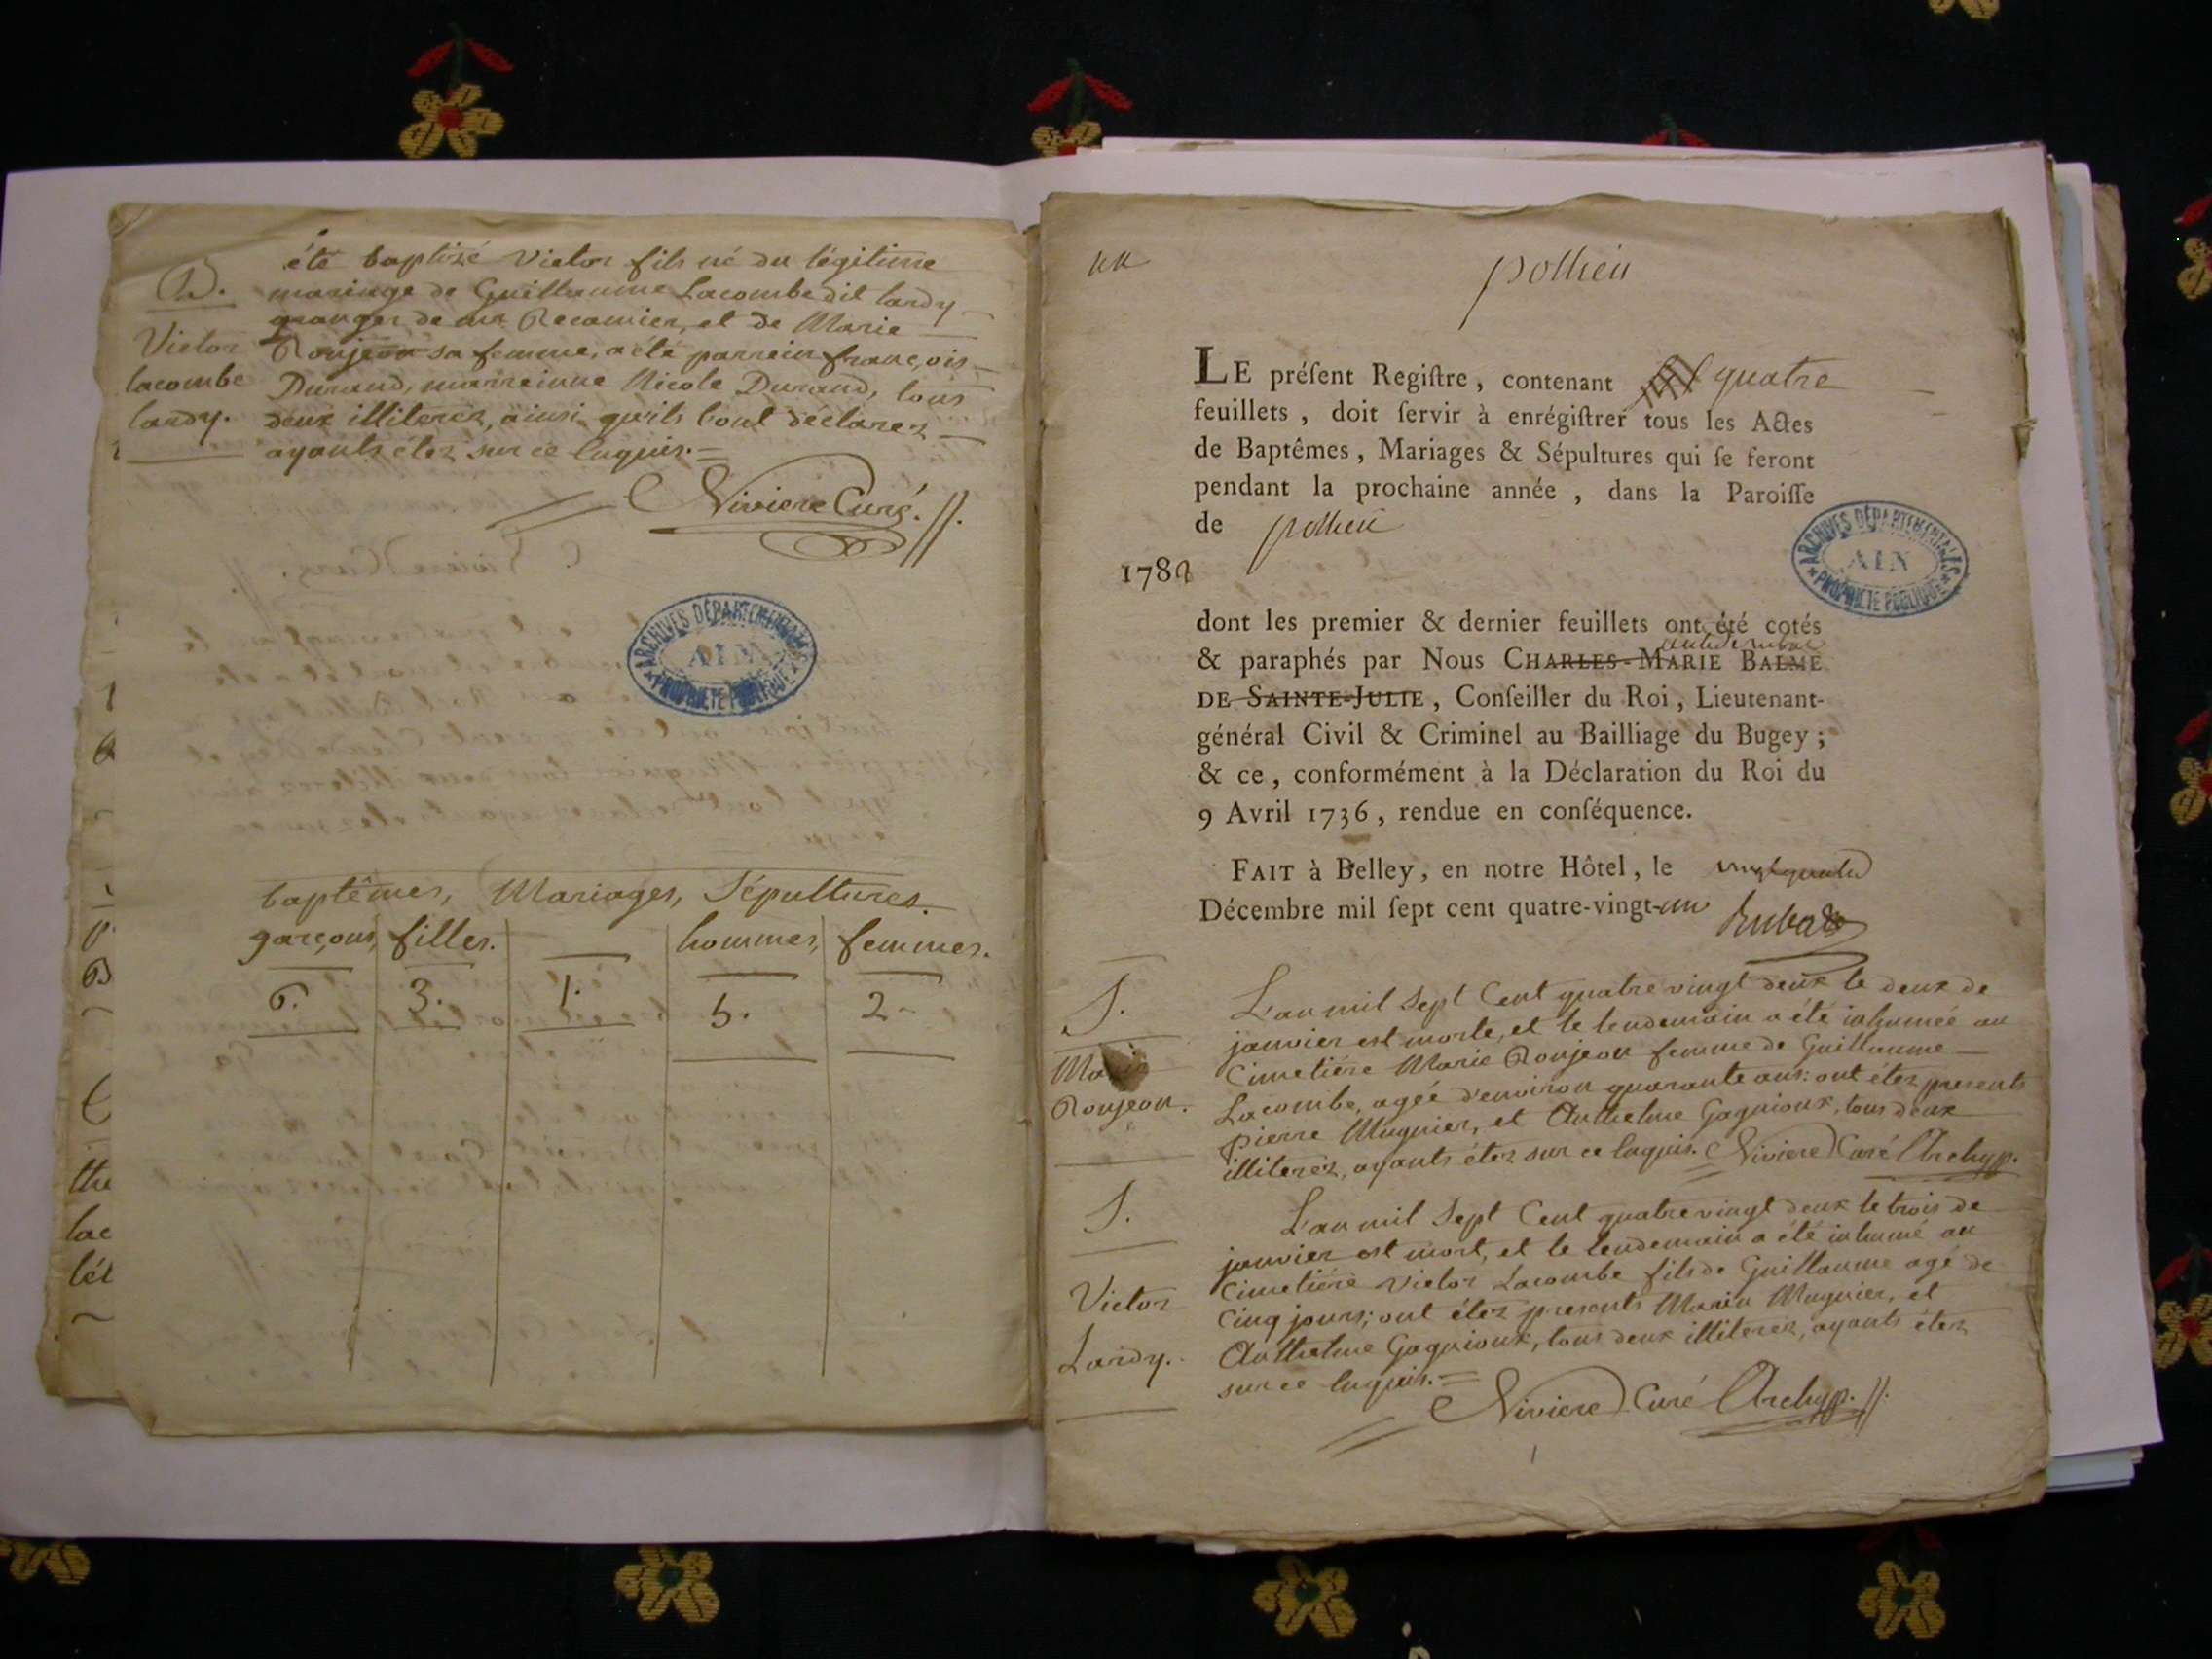 été baptizé Victor fils né du légitime
B. mariage de Guillaume Lacombe dit lardy
granger de mr Recamier, et de Marie
Victor Roujeon sa femme, a été parrein françois
lacombe Durand, marreinne Nicole Durand, tous
lardy. deux illiterez, ainsi qu'ils l'ont déclarez
ayants étez sur ce enquis.
Niviere Curé.
ARCHIVES DÉPARTEMENTALES
AIN
PROPRIÉTÉ PUBLIQUE
baptêmes, Mariages, Sépultures.
garçons, filles. hommes, femmes.
6. 3. 1. 5. 2
the
lac
lét
un
pollieu
LE préſent Regiſtre, contenant quatre
feuillets, doit ſervir à enrégiſtrer tous les Actes
de Baptêmes, Mariages & Sépultures qui ſe feront
pendant la prochaine année, dans la Paroiſſe
de pollieu
1782
ARCHIVES DÉPARTEMENTALES
AIN
PROPRIÉTÉ PUBLIQUE
dont les premier & dernier feuillets ont été cotés
& paraphés par Nous CHARLES-MARIE BALME
DE SAINTE-JULIE, Conſeiller du Roi, Lieutenant-
général Civil & Criminel au Bailliage du Bugey;
& ce, conformément à la Déclaration du Roi du
9 Avril 1736, rendue en conſéquence.
FAIT à Belley, en notre Hôtel, le vingt quatre
Décembre mil ſept cent quatre-vingt-un
Rubat
S. L'an mil Sept Cent quatre vingt deux le deux de
janvier est morte, et le lendemain a été inhumée au
Marie Cimetiére Marie Roujeon femme de Guillaume
Roujeon. Lacombe, agée d'environ quarante ans: ont étez presents
pierre Mugnier, et Anthelme Gagnioux, tous deux
illiterez, ayants étez sur ce enquis. Niviere Curé Archyp.
S. L'an mil Sept Cent quatre vingt deux le trois de
janvier est mort, et le lendemain a été inhumé au
Victor Cimetiére Victor Lacombe fils de Guillaume agé de
cinq jours; ont étez presents Marin Mugnier, et
Lardy. Anthelme Gagnioux, tous deux illiterez, ayants étez
sur ce enquis.
Niviere Curé Archyp.